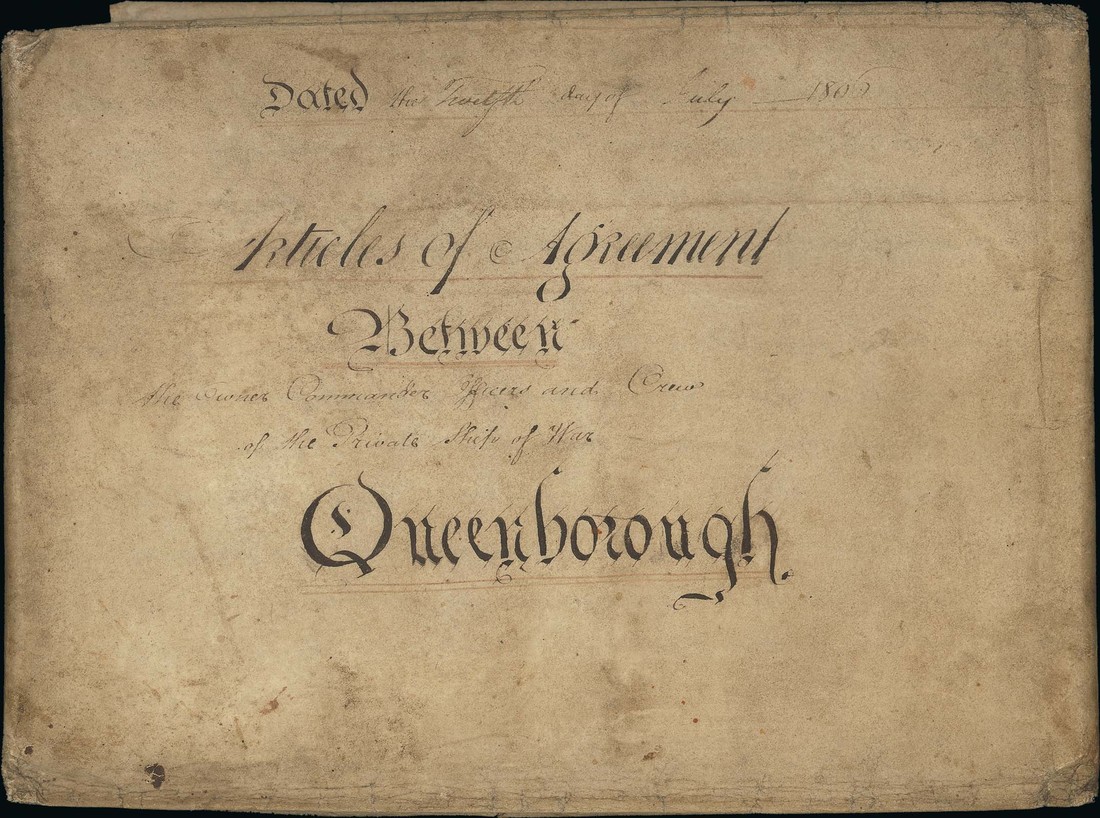 Dated the Twelfth day of July 1806
Articles of Agreement
Between
the Owner Commander Officers and Crew
of the Private Ship of War
Queenborough.